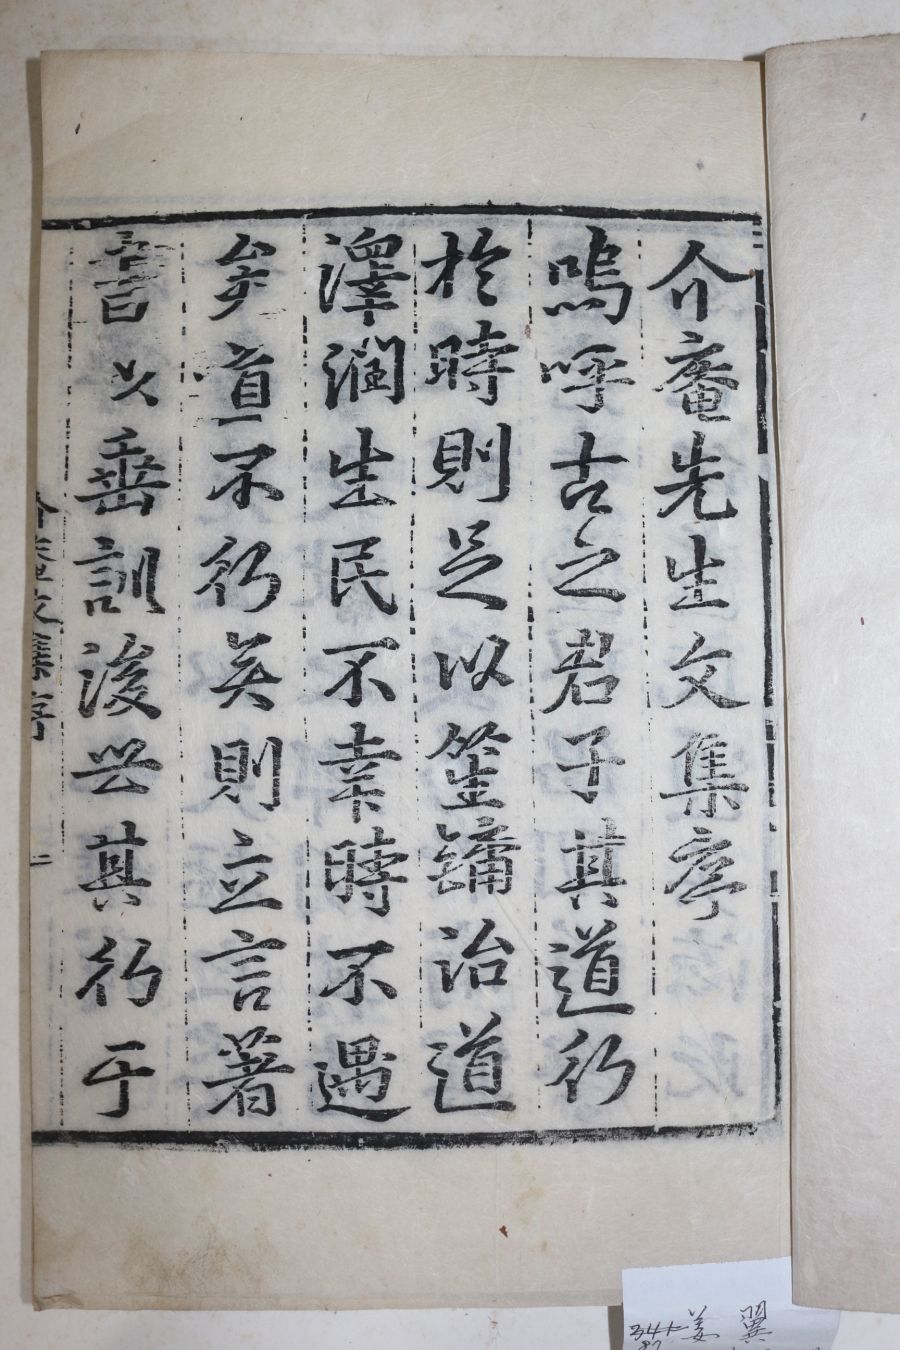 介菴先生文集序
嗚呼古之君子其道行
於時則足以笙鏞治道
澤潤生民不幸時不遇
矣道不行矣則立言著
書以垂訓後世其行于
介菴文集序
一
姜翼